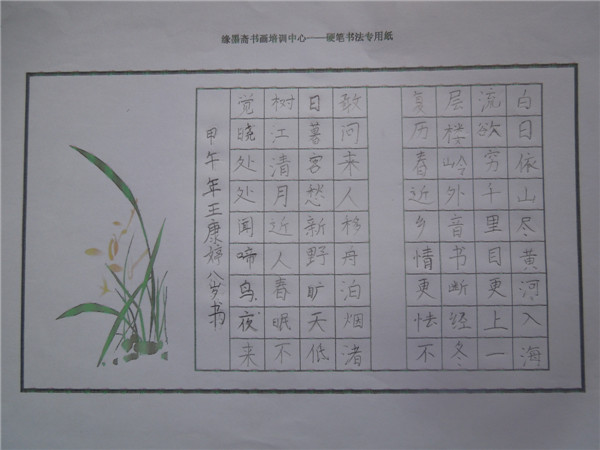 缘墨斋书画培训中心——硬笔书法专用纸
白日依山尽黄河入海
流欲穷千里目更上一
层楼岭外音书断经冬
复历春近乡情更怯不
敢问来人移舟泊烟渚
日暮客愁新野旷天低
树江清月近人春眠不
觉晓处处闻啼鸟夜来
甲午年王康婷八岁书